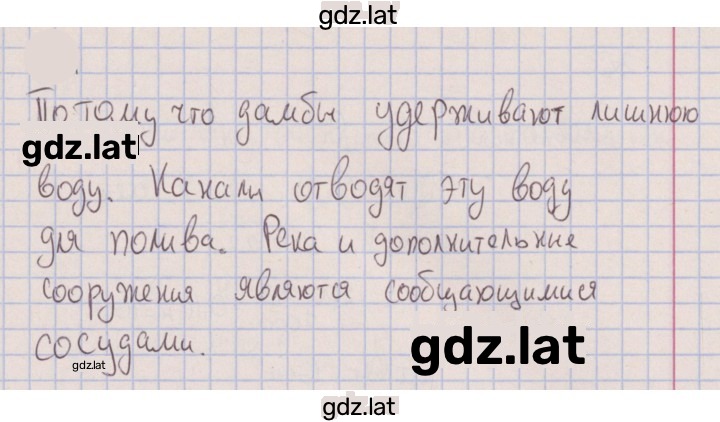 gdz.lat
Потому что дамбы удерживают лишнюю
gdz.lat
воду. Канали отводят эту воду
для полива. Река и дополнительние
сооружения являются сообщающимися
сосудами.
gdz.lat
gdz.lat
gdz.lat